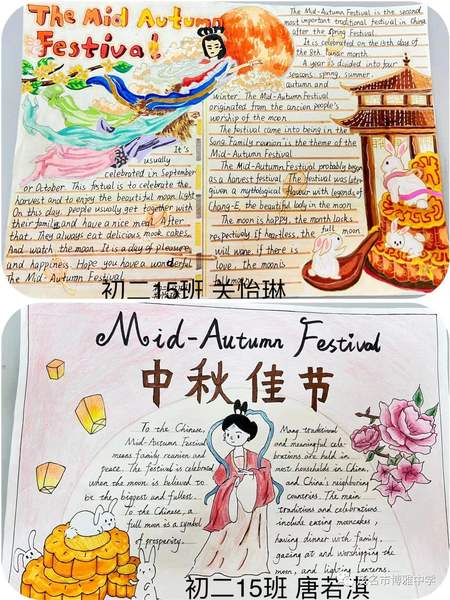 The Mid Autumn
Festival
It's
usually
celebrated in September
or October. This fstival is to celebrate the
harvest and to enjoy the beautiful moon light
On this day, people usually get together with
their family and have a nice meal. After
that. They always eat delicious mook cakes,
And watch the moon. It is a day of pleasure
and happiness. Hope you have a wonderful
The Mid-Autumn Festival
The Mid-Autumn Festival is the second
most important traditional festival in China
after the Spring Festival.
It is celebrated on the 15th day of
the 8th lunar month.
A year is divided into four
seasons, spring, summer,
autumn and
winter. The Mid-Autumn Festival
originated from the ancient people's
worship of the moon.
The festival came into being in the
Song. Family reunion is the theme of the
Mid-Autumn Festival.
The Mid-Autumn Festival probably began
as a harvest festival. The festival was later
given a mythological flavour with legends of
Chang-E, the beautiful lady in the moon.
The moon is happy, the month lacks
respectively, if heartless, the full moon
will wane, if there is
love, the moon is
初二15班 关怡琳
Mid-Autumn Festival
中秋佳节
To the Chinese,
Mid-Autumn Festival
means family reunion and
peace. The festival is celebrated
when the moon is believed to
be the biggest and fullest.
To the Chinese, a
full moon is a symbol
of prosperity.
Many traditional
and meaningful cele-
brations are held in
most households in China,
and China's neighboring
countries. The main
traditions and celebrations
include eating mooncakes,
having dinner with family,
gazing at and worshipping the
moon, and lighting lanterns.
初二15班 唐若淇
茂名市博雅中学